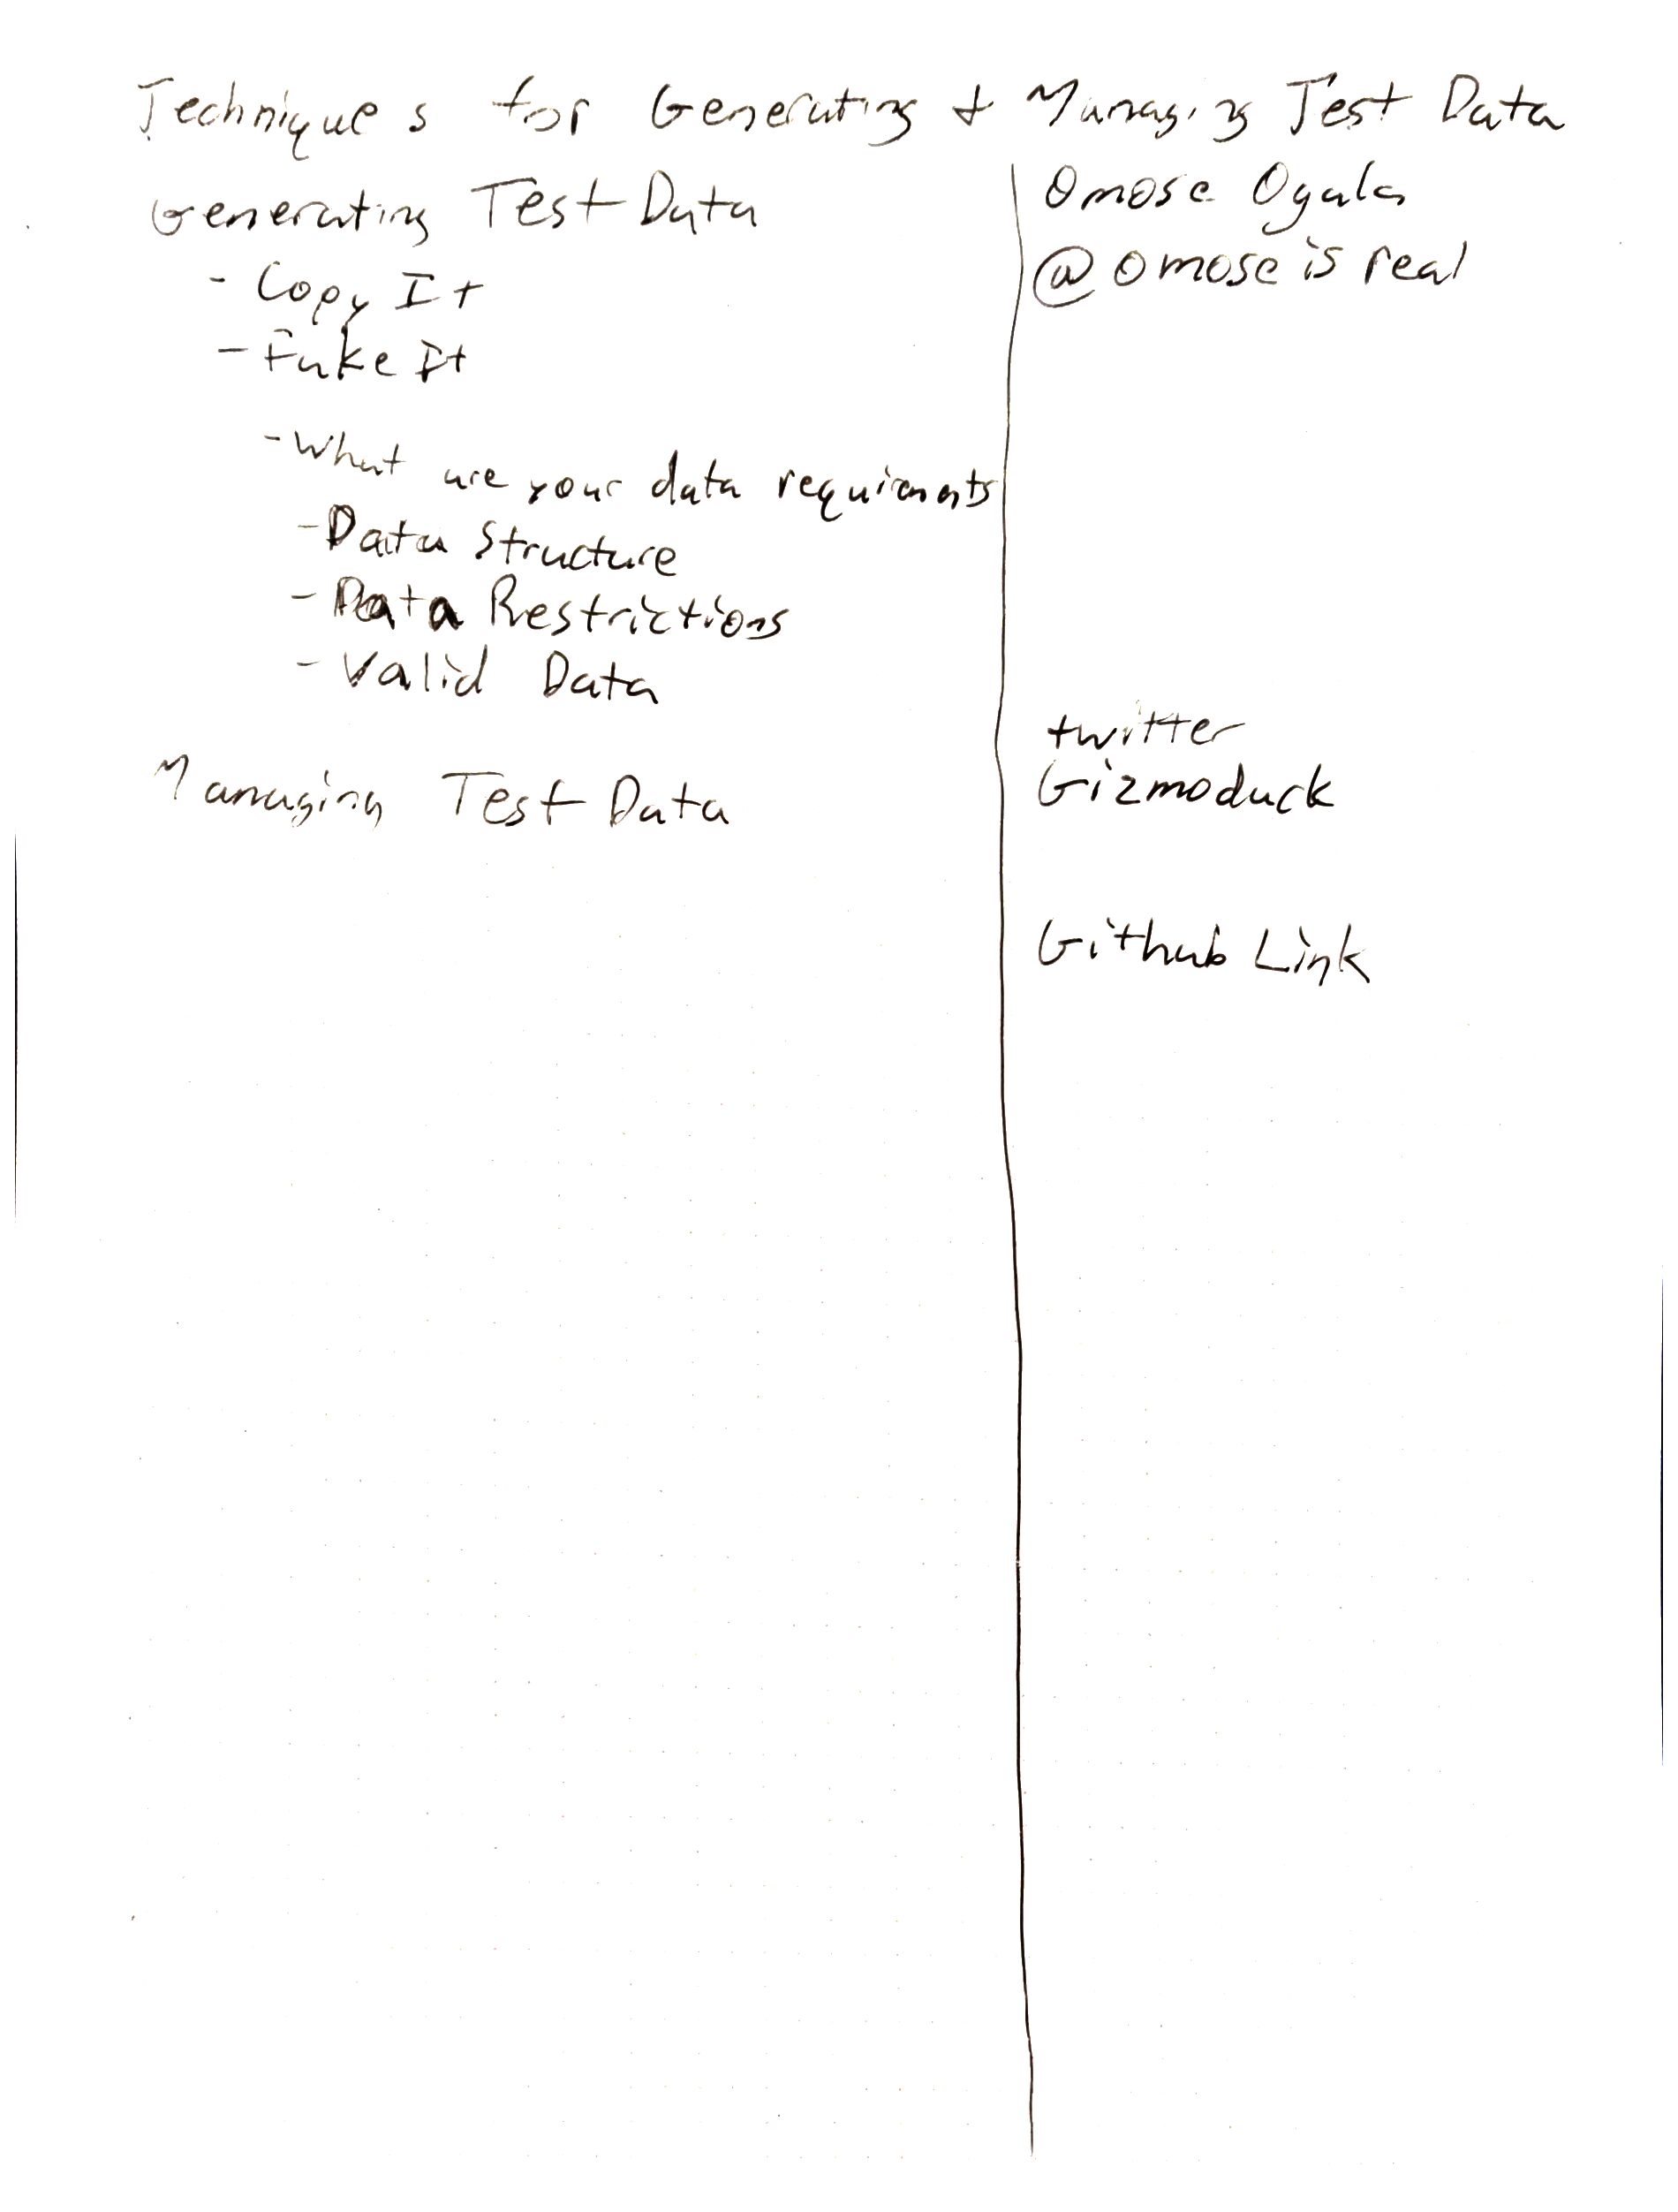 Techniques for Generating & Managing Test Data
Generating Test Data
- Copy It
- Fake It
- What are your data requirments
- Data Structure
- Data Restrictions
- Valid Data
Managing Test Data
Omose Ogala
@omose is real
twitter
Gizmoduck
Github Link